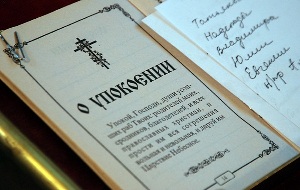 О УПОКОЕНИИ
Упокой, Господи, души усоп-
ших раб Твоих: родителей моих,
сродников, благодетелей, и всех
православных христиан, и
прости им вся согрешения
вольная и невольная, и даруй им
Царствие Небесное.
Владимира
Юлии
Евгении